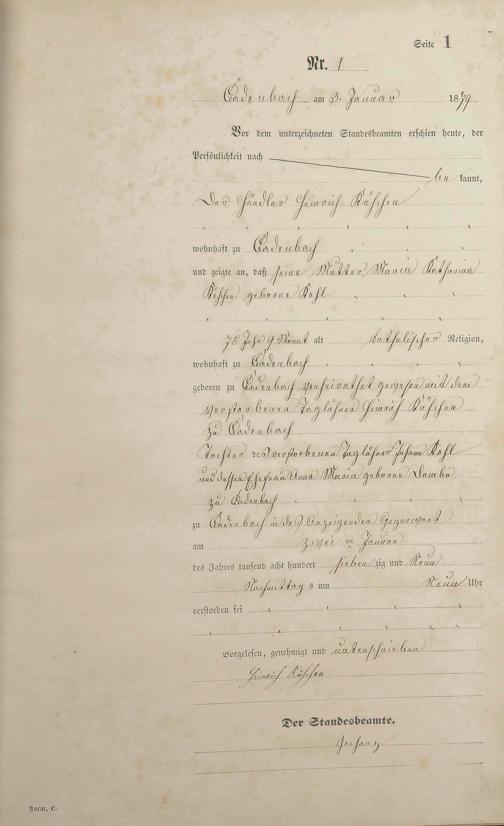 Seite 1
Nr. 1
Cadenbach am 3. Januar 1879
Vor dem unterzeichneten Standesbeamten erschien heute, der
Persönlichkeit nach
be kannt,
Der Händler Heinrich
wohnhaft zu Cadenbach
und zeigte an, daß seine Mutter Maria Katharina
geborene Kohl
75 Jahr 9 Monat alt katholischer Religion,
wohnhaft zu Cadenbach
geboren zu Cadenbach verheirathet gewesen mit dem
verstorbenen Taglöhner Heinrich
zu Cadenbach
Tochter des verstorbenen Taglöhner Johann Kohl
und dessen Ehefrau Anna Maria geborene
zu Cadenbach
zu Cadenbach in des Anzeigenden Gegenwart
am zwei ten Januar
des Jahres tausend acht hundert sieben zig und Neun
Nachmittag s um Neun Uhr
verstorben sei
Vorgelesen, genehmigt und unterschrieben
Heinrich
Der Standesbeamte.
Form. C.